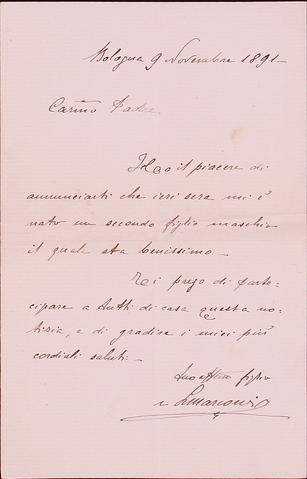 Bologna 9 Novembre 1891-
Carmo Padre
Ho il piacere di
annunciarti che ieri sera mi è
nato un secondo figlio maschio
il quale sta benissimo.-
Ti prego di parte-
cipare a tutti di casa questa no-
tizia, e di gradire i miei più
cordiali saluti.-
figlio
Marconi